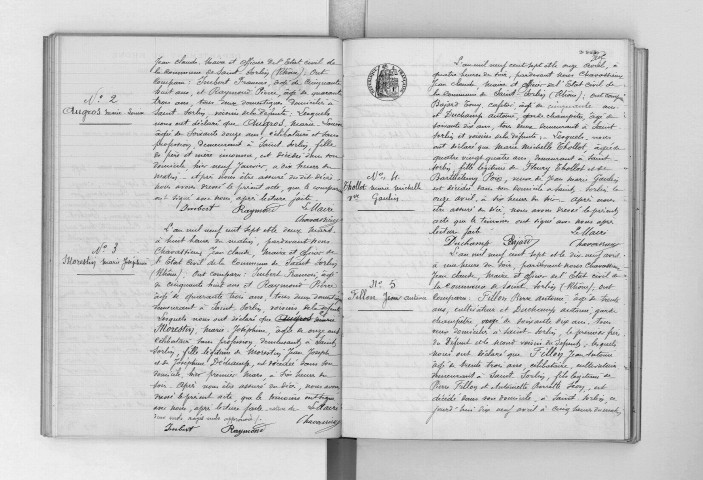 Jean Claude, maire et officier de l'Etat civil de
la commune de Saint Sorlin (Rhône); ont
comparu: Imbert Francois, âgé de cinquante
huit ans, et Raymond Pierre, âgé de quarante
trois ans, tous deux domestiques domiciliés à
Saint Sorlin, voisins de la défunte; lesquels
nous ont déclaré que Augros, Marie Louise
âgée de soixante ans, célibataire et sans
profession, demeurant à Saint Sorlin, fille
de père et mère inconnus, est décédée dans son
domicile hier neuf janvier, à dix heures du
matin. Après nous être assuré du dit décès
avons dressé le présent acte, que le comparant
signé avec nous après lecture faite.
Imbert Raymond Le Maire
Chavassieux
N° 2
Augros Marie Louise
L'an mil neuf cent sept et le deux mars
à huit heures du matin, pardevant nous
Chavassieux Jean Claude, maire et officier de
l'Etat Civil de la Commune de Saint Sorlin
(Rhône); ont comparu: Imbert Francois, âgé
de cinquante huit ans et Raymond Pierre
âgé de quarante trois ans, tous deux
demeurant à Saint Sorlin, voisins de la défunte
lesquels nous ont déclaré que
Morestin, Marie Joséphine, âgée de onze ans
célibataire sans profession, demeurant à Saint
Sorlin, fille légitime de Morestin Jean Joseph
et de Joséphine Déchamp, est décédée dans son
domicile, hier premier mars à heures du
soir. Après nous être assuré du décès, nous avons
dressé le présent acte, que le témoins ont signé
avec nous, après lecture faite. Le Maire
deux mots rayés nuls approuvés. Chavassieux
Imbert Raymond
N° 3
Morestin Marie Joséphine
L'an mil neuf cent sept et le onze avril, à
quatre heures du soir, pardevant nous Chavassieux
Jean Claude, maire et officier de l'Etat Civil de
la commune de Saint Sorlin (Rhône); ont comparu
Bajard Tony, cafetier, âgé de cinquante ans
et Duchamp Antoine, garde champêtre, âgé de
soixante dix ans, tous deux demeurant à Saint
Sorlin et voisins de la défunte, lesquels nous
ont déclaré que Marie Michelle Thollot, âgée de
quatre vingt quatre ans, demeurant à Saint
Sorlin, fille légitime de Fleury Thollot et de
Barthélemy, veuve de Jean Marie Gaulin
est décédée, dans son domicile à Saint Sorlin le
onze avril, à dix heures du soir. Après nous
être assuré du décès, nous avons dressé le présent
acte que le témoins ont signé avec nous après
lecture faite. Le Maire
Duchamp Bajard Chavassieux
N° 4
Thollot Marie Michelle
Vve Gaulin
L'an mil neuf cent sept et le dix neuf avril
à une heure du soir, pardevant nous Chavassieux
Jean Claude, Maire et officier de l'Etat civil de
la commune de Saint Sorlin (Rhône), ont
comparu: Fillon Pierre Antoine, âgé de trente
ans, cultivateur et Duchamp Antoine, garde
champêtre, âgé de soixante dix ans, tous
deux domiciliés à Saint Sorlin, le premier frère
du défunt et le second voisin du défunt, lesquels
nous ont déclaré que Fillon, Jean Antoine
âgé de trente trois ans, célibataire, cultivateur
demeurant à Saint Sorlin, fils légitime de
Pierre Fillon et Antoinette, est
décédé dans son domicile, à Saint Sorlin, ce
jourd'hui dix neuf avril à cinq heures du matin,
N° 5
Fillon Jean Antoine